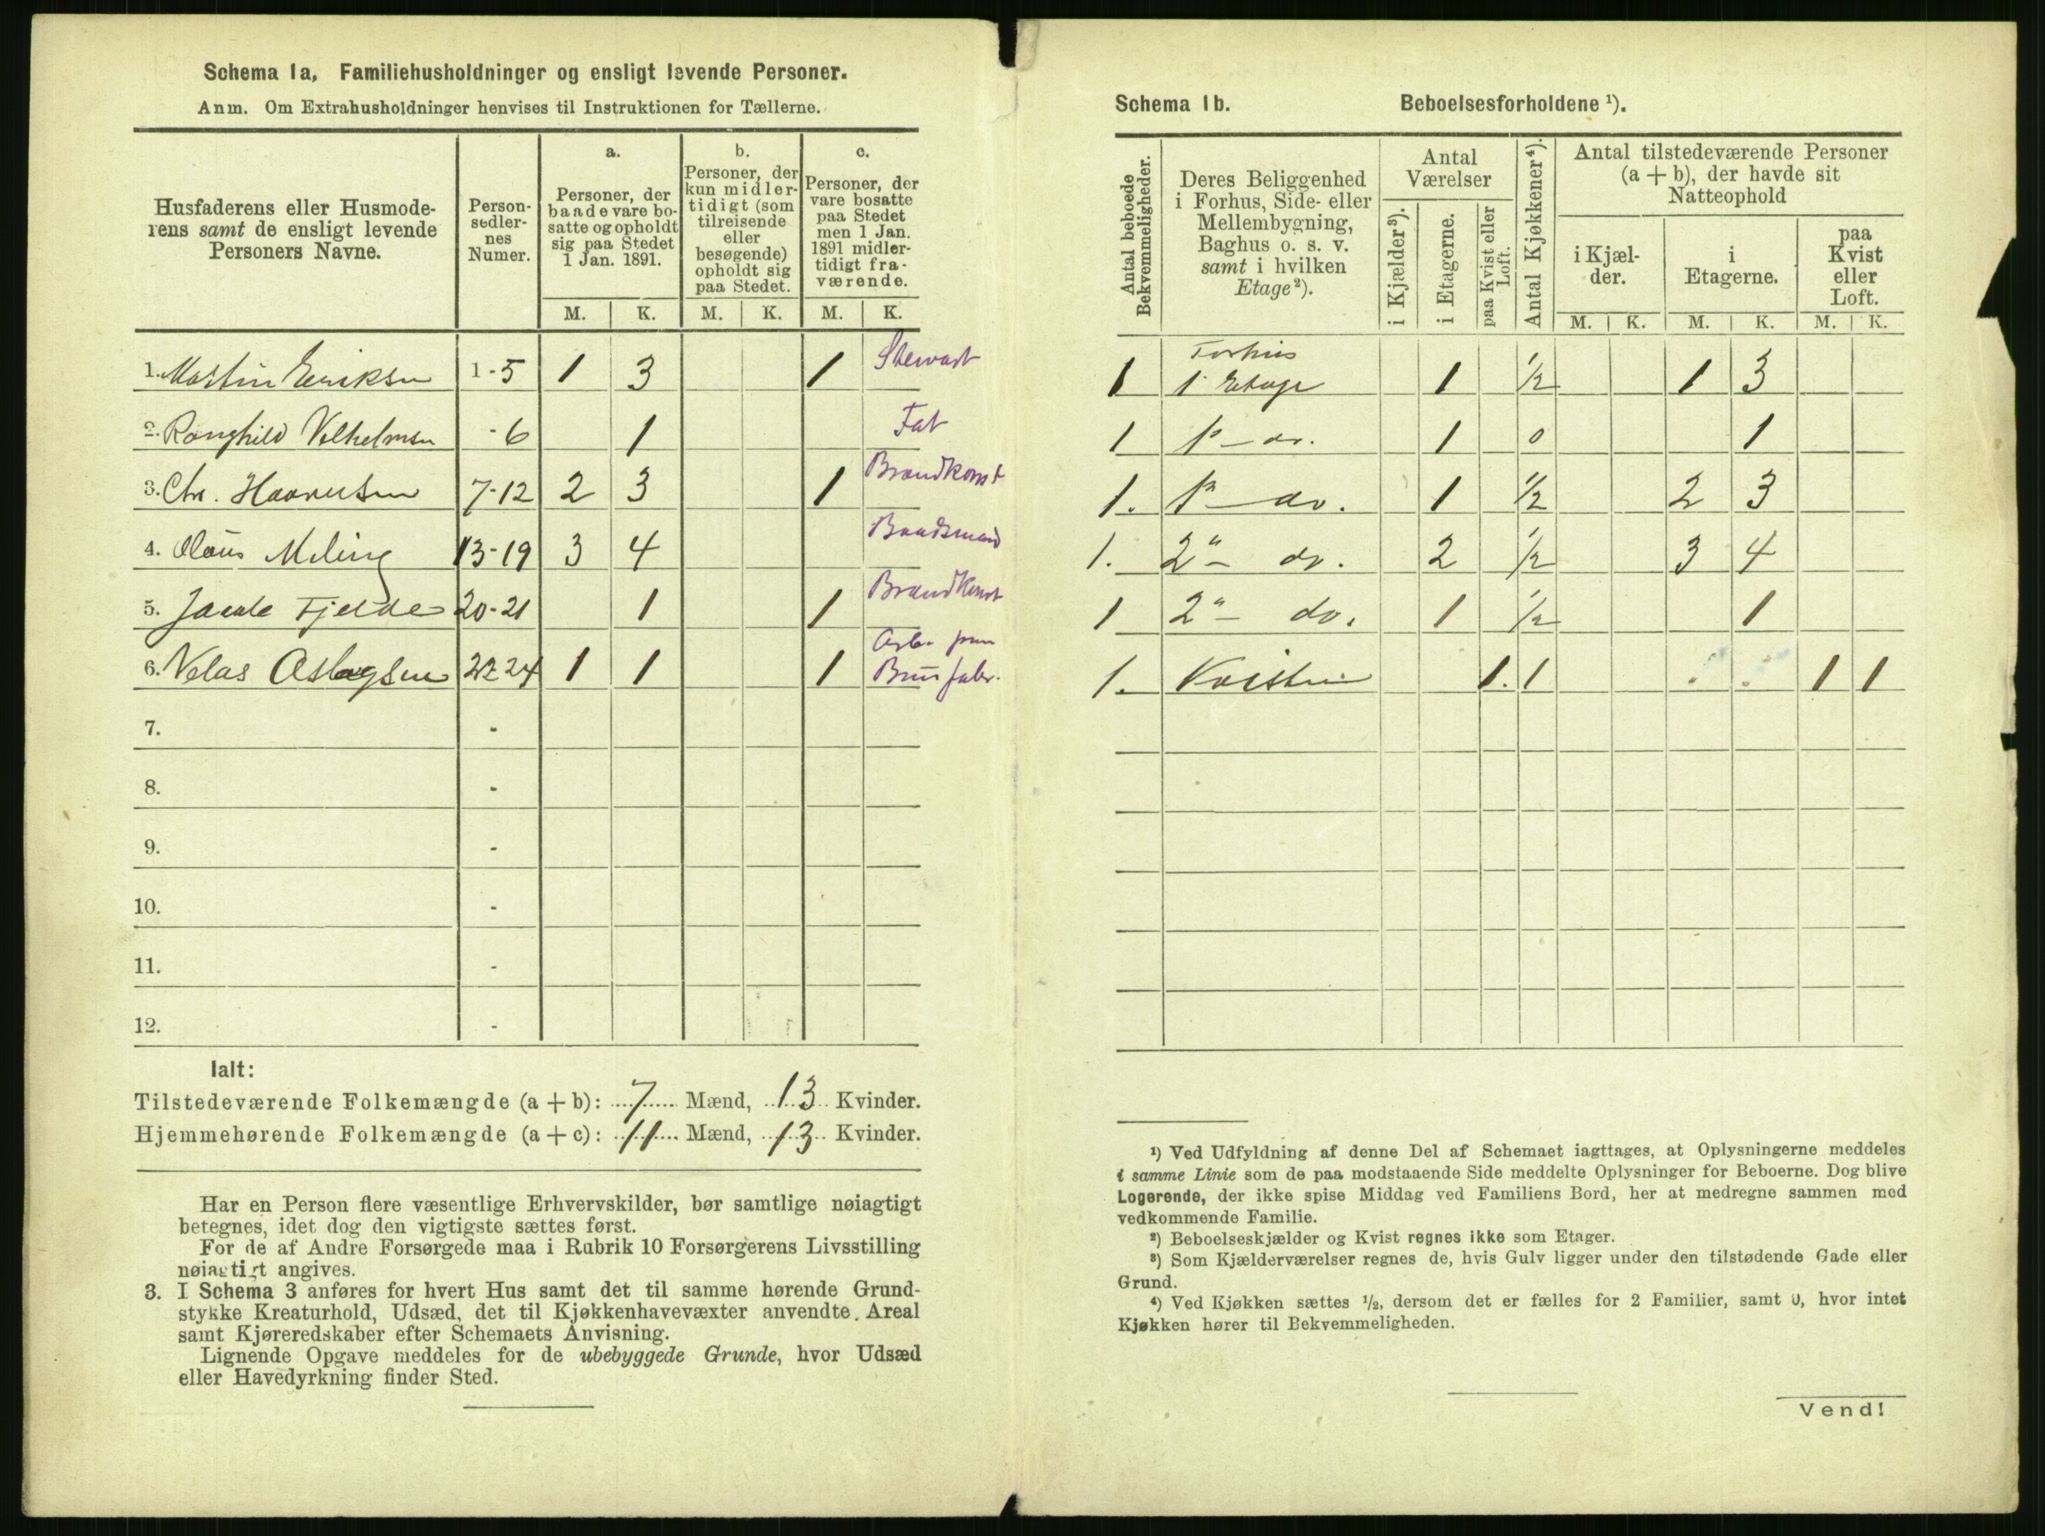 Schema 1a, Familiehusholdninger og ensligt levende Personer.
Anm. Om Extrahusholdninger henvises til Instruktionen for Tællerne.
Husfaderens eller Husmode-
rens samt de ensligt levende
Personers Navne.
Person-
sedler-
nes
Numer.
a.
Personer, der
baade vare bo-
satte og opholdt
sig paa Stedet
1 Jan. 1891.
b.
Personer, der
kun midler-
tidigt (som
tilreisende
eller
besøgende)
opholdt sig
paa Stedet.
c.
Personer, der
vare bosatte
paa Stedet
men 1 Jan.
1891 midler-
tidigt fra-
værende.
M. K. M. K. M. K.
1. Martin Eriksen 1-5 1 3 1 Stewart
2. Ranghild Vilhelmsen -6 1 Fat
3. Chr. 7-12 2 3 1 Brandkonst
4. Olaus Meling 13-19 3 4 Baadsmand
5. Fjelde 20-21 1 1 Brandkonst
6. Aslagsen 22-24 1 1 1 Arb.
7. -
8. -
9. -
10. -
11. -
12. -
Ialt:
Tilstedeværende Folkemængde (a + b): 7 Mænd, 13 Kvinder.
Hjemmehørende Folkemængde (a + c): 11 Mænd, 13 Kvinder.
Har en Person flere væsentlige Erhvervskilder, bør samtlige nøiagtigt
betegnes, idet dog den vigtigste sættes først.
For de af Andre Forsørgede maa i Rubrik 10 Forsørgerens Livsstilling
nøiagtigt angives.
3. I Schema 3 anføres for hvert Hus samt det til samme hørende Grund-
stykke Kreaturhold, Udsæd, det til Kjøkkenhavevæxter anvendte Areal
samt Kjøreredskaber efter Schemaets Anvisning.
Lignende Opgave meddeles for de ubebyggede Grunde, hvor Udsæd
eller Havedyrkning finder Sted.
Schema 1b. Beboelsesforholdene ¹).
Antal beboede
Bekvemmeligheder.
Deres Beliggenhed
i Forhus, Side- eller
Mellembygning,
Baghus o. s. v.
samt i hvilken
Etage²).
Antal
Værelser
i Kjælder³).
i Etagerne.
paa Kvist eller
Loft.
Antal Kjøkkener⁴).
Antal tilstedeværende Personer
(a + b), der havde sit
Natteophold
i Kjæl-
der.
i
Etagerne.
paa
Kvist
eller
Loft.
M. K. M. K. M. K.
1 Forhus
1. Etage 1 1/2 1 3
1 1ᵉ — do. 1 0 1
1. 1ᵉ — do. 1 1/2 2 3
1. 2" — do. 2 1/2 3 4
1 2" — do. 1 1/2 1
1. Kvisten 1. 1 1 1
¹) Ved Udfyldning af denne Del af Schemaet iagttages, at Oplysningerne meddeles
i samme Linie som de paa modstaaende Side meddelte Oplysninger for Beboerne. Dog blive
Logerende, der ikke spise Middag ved Familiens Bord, her at medregne sammen med
vedkommende Familie.
²) Beboelseskjælder og Kvist regnes ikke som Etager.
³) Som Kjælderværelser regnes de, hvis Gulv ligger under den tilstødende Gade eller
Grund.
⁴) Ved Kjøkken sættes ½, dersom det er fælles for 2 Familier, samt 0, hvor intet
Kjøkken hører til Bekvemmeligheden.
Vend!